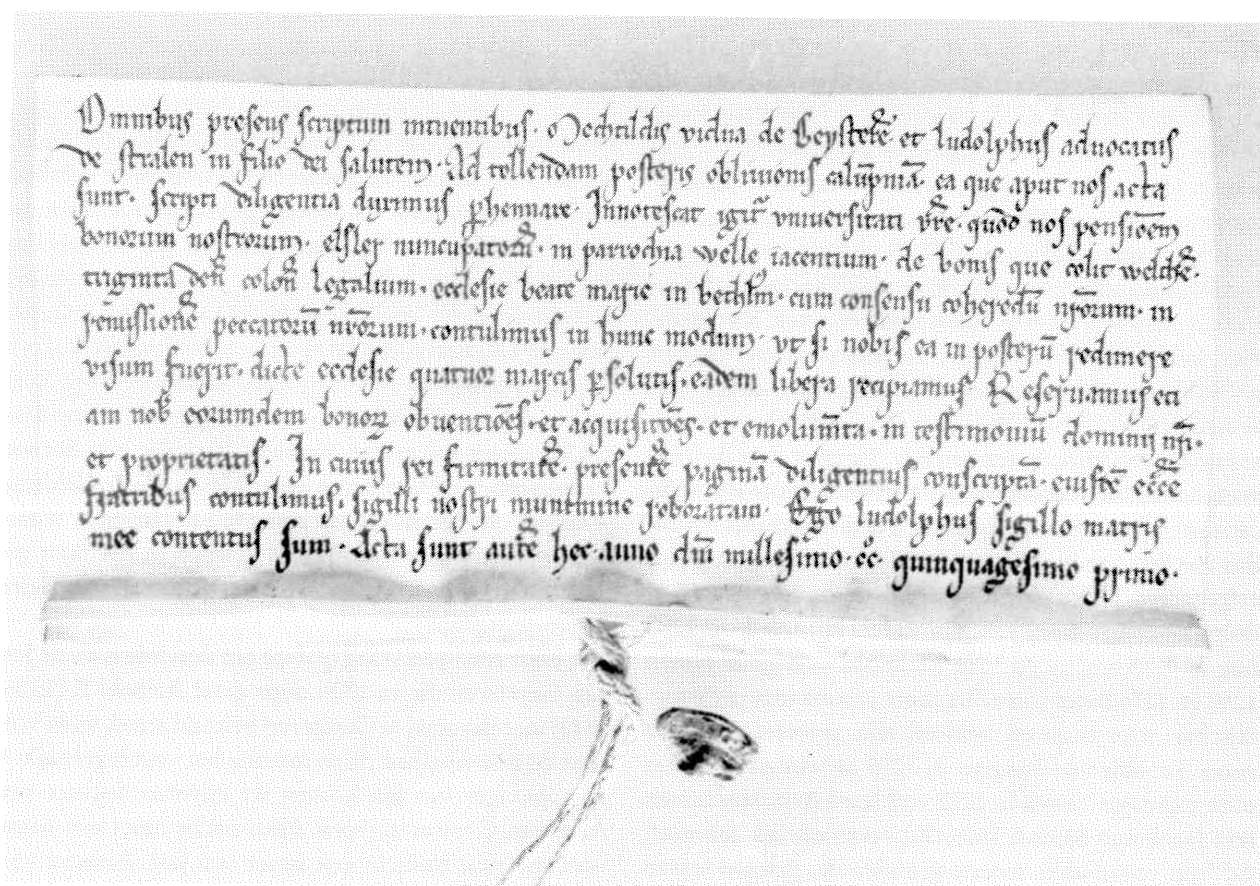 Omnibus presens scriptum intuentibus. Mechtildis vidua de Beystere et ludolphus aduocatus
de stralen in filio dei salutem. Ad tollendam posteris obliuionis calūpniā ea que aput nos acta
sunt. scripti diligentia duximus phennare. Innotescat igit vniuersitati vre. quod nos pensionem
bonorum nostrorum. elsley nuncupatorū. in parrochia welle iacentium. de bonis que colit
triginta den colon legalium. ecclesie beate marie in bethlm. cum consensu coheredū nrorum. in
remissionē peccatorū nrorum. contulimus in hunc modum. vt si nobis ea in posterū redimere
visum fuerit. dicte ecclesie quatuor marcis psolutis. eadem libera recipiamus Reseruamus eci
am nob eorumdem bonoꝝ obuentiōes. et acquisitōes. et emolumta. in testimoniū dominij nri.
et proprietatis. In cuius rei firmitatē. presentē paginā diligentius conscriptā. eiusdē eccē
fratribus contulimus. sigilli nostri munimine roboratam. Ego ludolphus sigillo matris
mee contentus sum. Acta sunt autē hec. anno dni millesimo. cc. quinquagesimo primo.